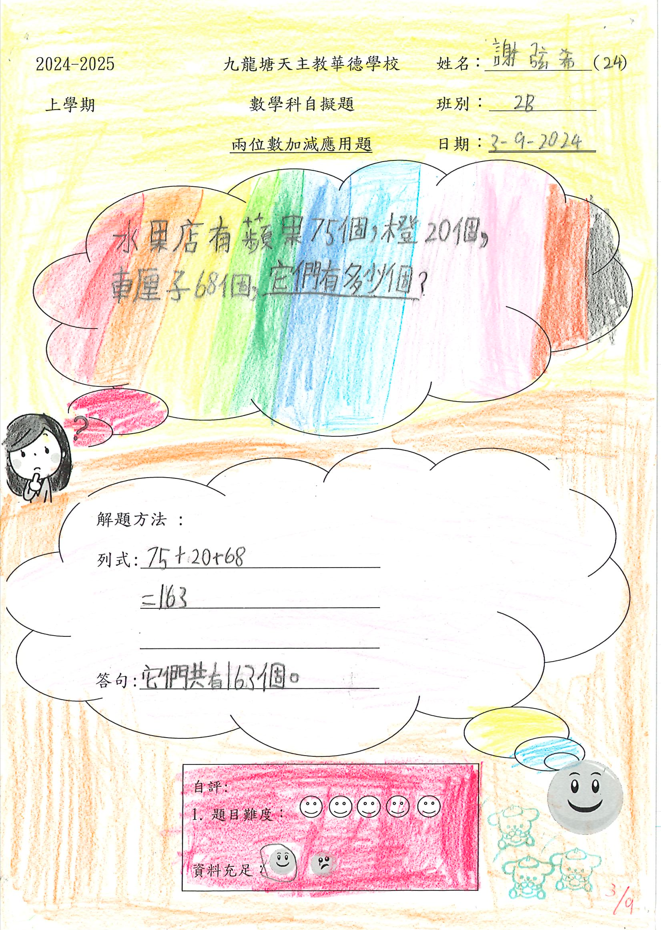 2024-2025 九龍塘天主教華德學校 姓名：謝弦希(24)
上學期 數學科自擬題 班別：2B
兩位數加減應用題 日期：3-9-2024
水果店有蘋果75個,橙20個,
車厘子68個,它們有多少個?
?
解題方法：
列式:75+20+68
=163
答句:它們共有163個。
自評:
1. 題目難度：
資料充足：
3/9